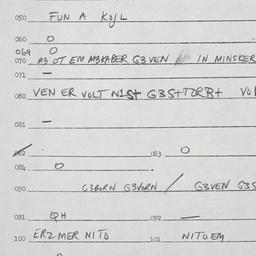 050 FUN A KOJL
060 O
069 O
070 #3 OT EM M3KABER G3VEN IN MINSKER
071 —
080 VEN ER VOLT N1St G3S++TORB+
081 —
082 083 O
084 O
090 G3BORN G3VORN / G3VEN G3S
091 QH 092 —
100 ER2 MER NITO 101 NITO EM